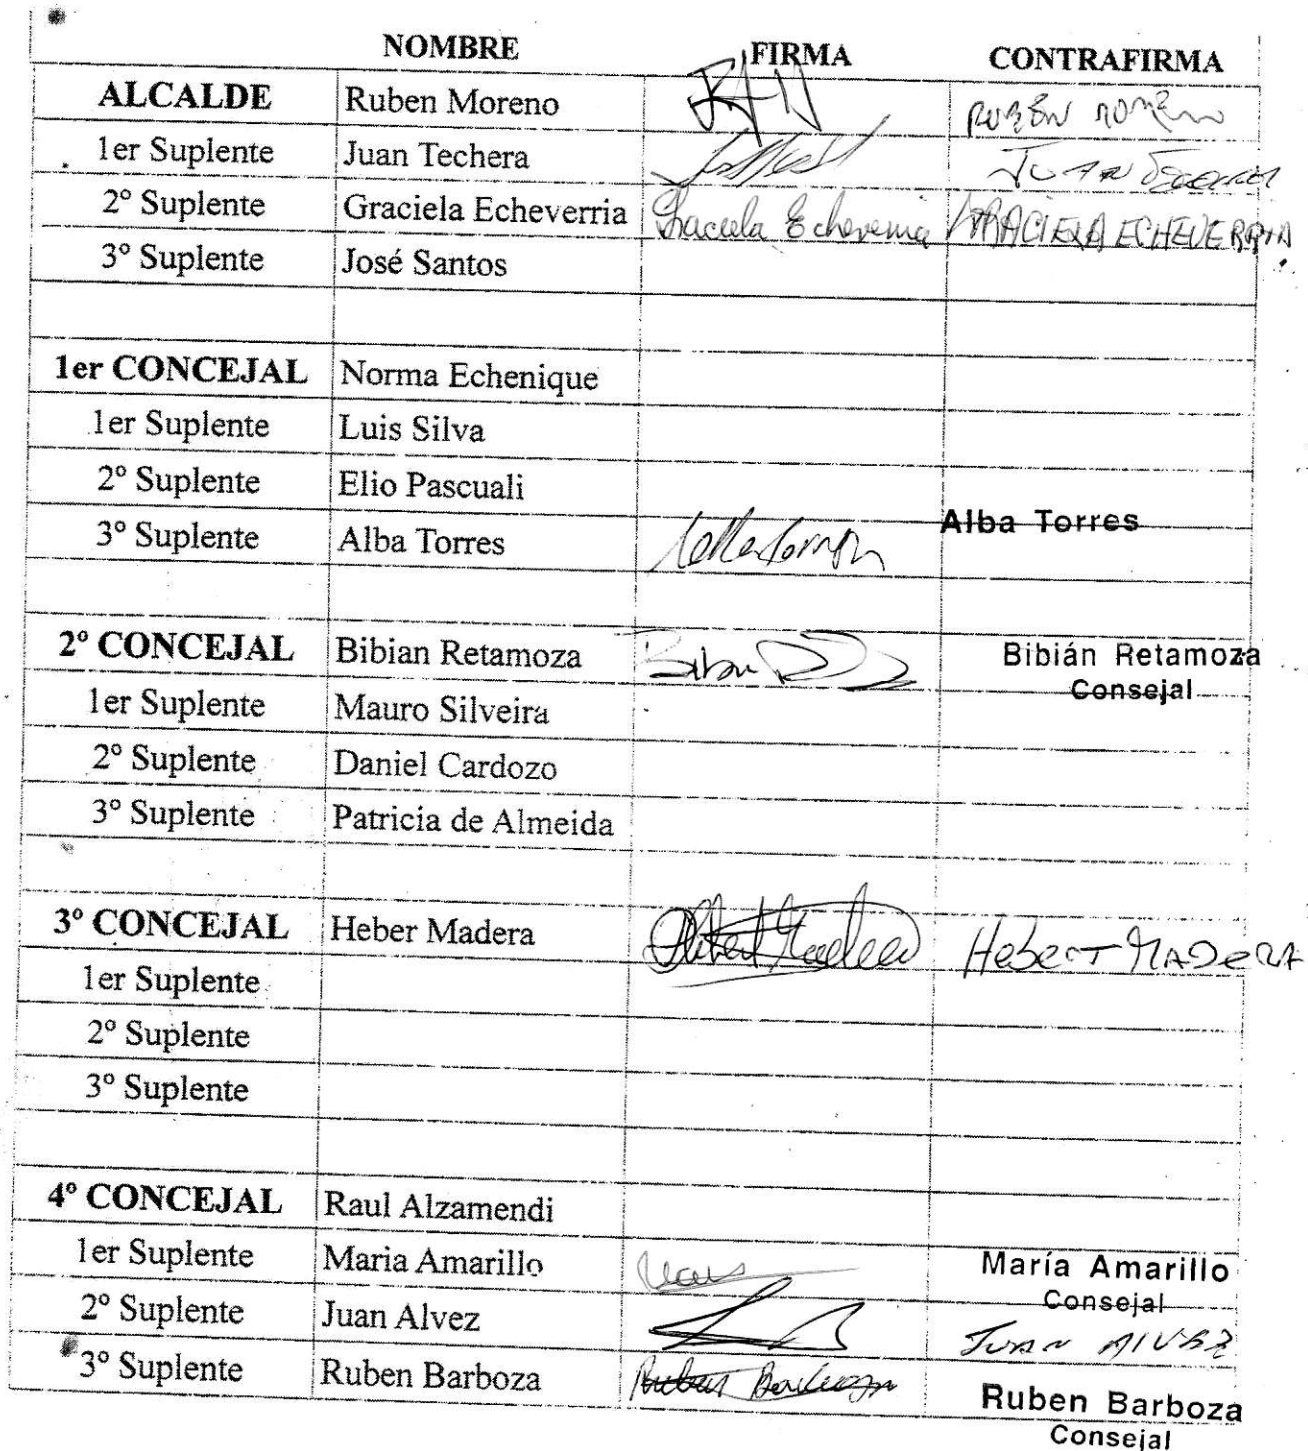 NOMBRE FIRMA CONTRAFIRMA
ALCALDE Ruben Moreno RUBÉN MORENO
1er Suplente Juan Techera JUAN TECHERA
2º Suplente Graciela Echeverria Graciela Echeverria GRACIELA ECHEVERRIA
3º Suplente José Santos
1er CONCEJAL Norma Echenique
1er Suplente Luis Silva
2º Suplente Elio Pascuali
3º Suplente Alba Torres Alba Torres
2º CONCEJAL Bibian Retamoza Bibián Retamoza
Consejal
1er Suplente Mauro Silveira
2º Suplente Daniel Cardozo
3º Suplente Patricia de Almeida
3º CONCEJAL Heber Madera Hebert MADERA
1er Suplente
2º Suplente
3º Suplente
4º CONCEJAL Raul Alzamendi
1er Suplente Maria Amarillo María Amarillo
Consejal
2º Suplente Juan Alvez JUAN AlVEZ
3º Suplente Ruben Barboza Ruben Barboza Ruben Barboza
Consejal